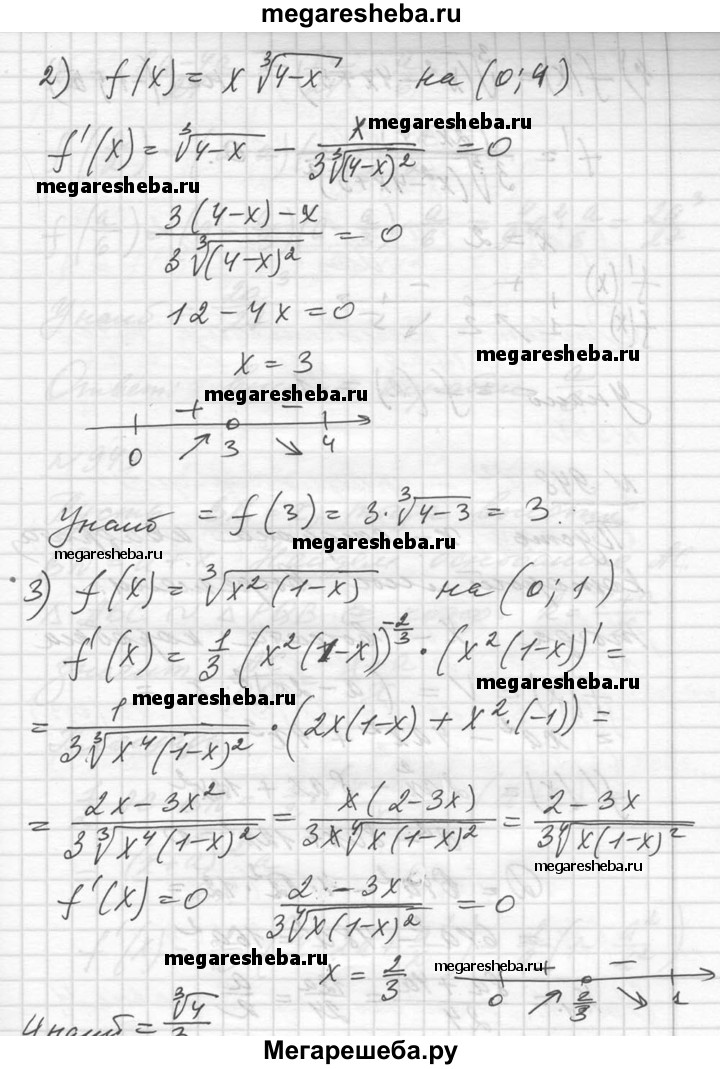 megaresheba.ru
2) f(x) = x ∛(4-x) на (0; 4)
megaresheba.ru
f'(x) = ∛(4-x) - x / (3∛((4-x)^2)) = 0
megaresheba.ru
(3(4-x) - x) / (3∛((4-x)^2)) = 0
12 - 4x = 0
x = 3
megaresheba.ru
megaresheba.ru
+ -
0 ↗ 3 ↘ 4
Унаиб = f(3) = 3·∛(4-3) = 3.
megaresheba.ru
megaresheba.ru
3) f(x) = ∛(x^2(1-x)) на (0; 1)
f'(x) = 1/3 (x^2(1-x))^(-2/3) · (x^2(1-x))' =
megaresheba.ru
megaresheba.ru
= 1 / (3∛(x^4(1-x)^2)) · (2x(1-x) + x^2·(-1)) =
= (2x - 3x^2) / (3∛(x^4(1-x)^2)) = x(2-3x) / (3x∜(x(1-x)^2)) = (2-3x) / (3∜(x(1-x)^2))
megaresheba.ru
f'(x) = 0 (2-3x) / (3∜(x(1-x)^2)) = 0
megaresheba.ru
x = 2/3
megaresheba.ru
+ -
0 ↗ 2/3 ↘ 1
Унаиб = ∛4/3
Мегарешеба.ру